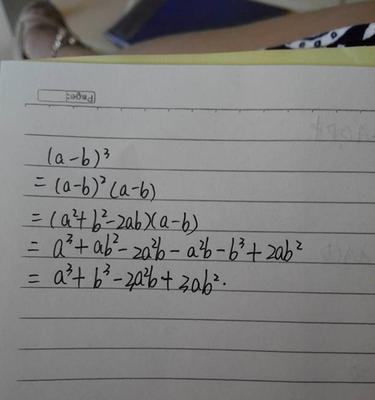 Page:
(a-b)³
= (a-b)²(a-b)
= (a²+b²-2ab)(a-b)
= a³+ab²-2a²b-a²b-b³+2ab²
= a³+b³-3a²b+3ab².